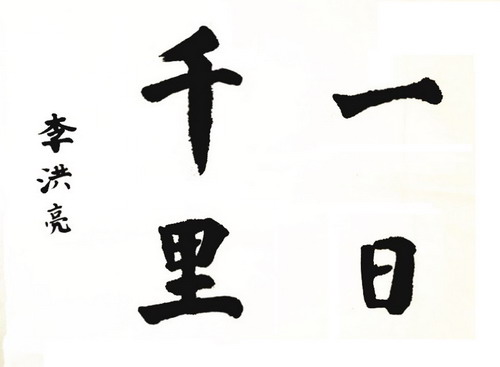 一日
千里
李洪亮